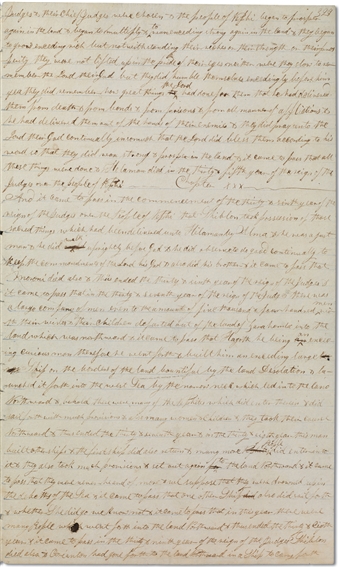 Judges & their Chief Judges were chosen & the people of Nephi began to prosper
again in the land & began to multiply & to wax exceeding strong again in the land & they began
to grow exceeding rich but notwithstanding their riches or their strength or their pros
perity they were not lifted up in the pride of their eyes neither were they slow to re
member the Lord their God but they did humble themselves exceedingly before him
yea they did remember how great things the Lord had done for them that he had delivered
them from death & from bonds & from prisons & from all manner of afflictions &
he had delivered them out of the hands of their enemies & they did pray unto the
Lord their God continually insomuch that the Lord did bless them according to his
word so that they did wax strong & prosper in the land & it came to pass that all
these things were done & Helaman died in the thirty & fifth year of the reign of the
Judges over the people of Nephi
Chapter XXX
And it came to pass in the commencement of the thirty & sixth year of the
reign of the Judges over the people of Nephi that Shiblon took possession of those
sacred things which had been delivered unto Helaman by Alma & he was a just
man & he did walk uprightly before God & he did observe to do good continually to
keep the commandments of the Lord his God & also did his brother & it came to pass that
Moroni died also & thus ended the thirty & sixth year of the reign of the Judges &
it came to pass that in the thirty & seventh year of the reign of the Judges there was
a large company of men even to the amount of five thousand & four hundred men
with their wives & their children departed out of the land of Zarahemla into the
land which was northward & it came to pass that Hagoth he being an exceed
ing curious man therefore he went forth & built him an exceeding large
Ship on the borders of the land bountiful by the land Desolation & la
unched it forth into the west Sea by the narrow neck which led into the land
Northward & behold there were many of the Nephites which did enter therein & did
sail forth with much provisions & also many women & children & they took their course
Northward & thus ended the thirty & seventh year & in the thirty & eighth year this man
built other ships & the first ship did also return & many more people did enter into
it & they also took much provisions & set out again to the land Northward & it came
to pass that they were never heard of more & we suppose that they were drowned up in
the depths of the Sea & it came to pass that one other Ship also did sail forth
& whither she did go we know not & it came to pass that in this year there were
many people which went forth into the land Northward & thus ended the thirty & eighth
year & it came to pass in the thirty & ninth year of the reign of the Judges Shiblon
died also & Corianton had gone forth to the land Northward in a Ship to carry forth